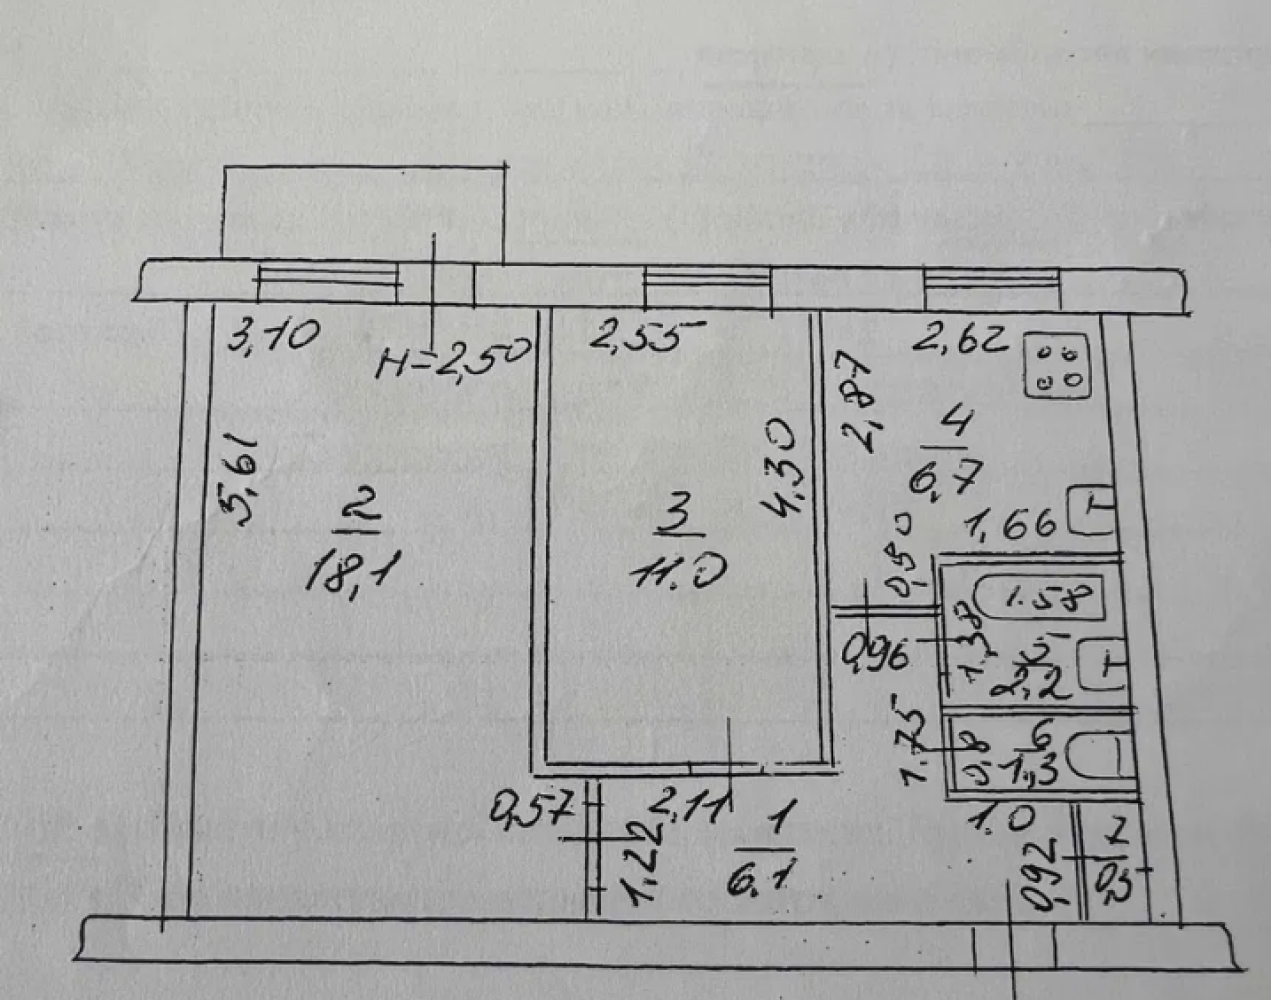 3,10
H=2,50
2,55
2,62
5,61
2
18,1
3
11.0
4,30
2,87
4
6,7
1,66
0,50
0,96
1.58
1,38
5
2,2
1.75
0,8
6
1,3
0,57
2,11
1,22
1
6.1
1.0
0,92
7
0,5